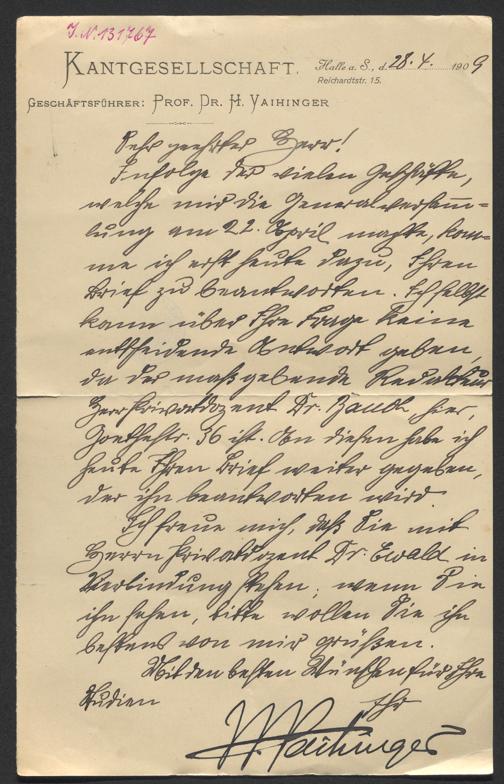 J.N. 131767
KANTGESELLSCHAFT.
Halle a. S., d. 28. 4. 1909
Reichardtstr. 15.
GESCHÄFTSFÜHRER: PROF. DR. H. VAIHINGER
Sehr geehrter Herr!
Infolge der vielen Geschäfte,
welche mir die Generalversamm=
lung am 22. April machte, kom=
me ich erst heute dazu, Ihren
Brief zu beantworten. Ich selbst
kann über Ihre Frage keine
entscheidende Antwort geben,
da der maßgebende Redakteur
Herr Privatdozent Dr. Bauch hier,
Goethestr. 36 ist. An diesen habe ich
heute Ihren Brief weiter gegeben,
der ihn beantworten wird.
Ich freue mich, daß Sie mit
Herrn Privatdozent Dr. Ewald in
Verbindung stehen; wenn Sie
ihn sehen, bitte wollen Sie ihn
bestens von mir grüßen.
Mit den besten Wünschen für Ihre
Studien
Ihr
H. Vaihinger